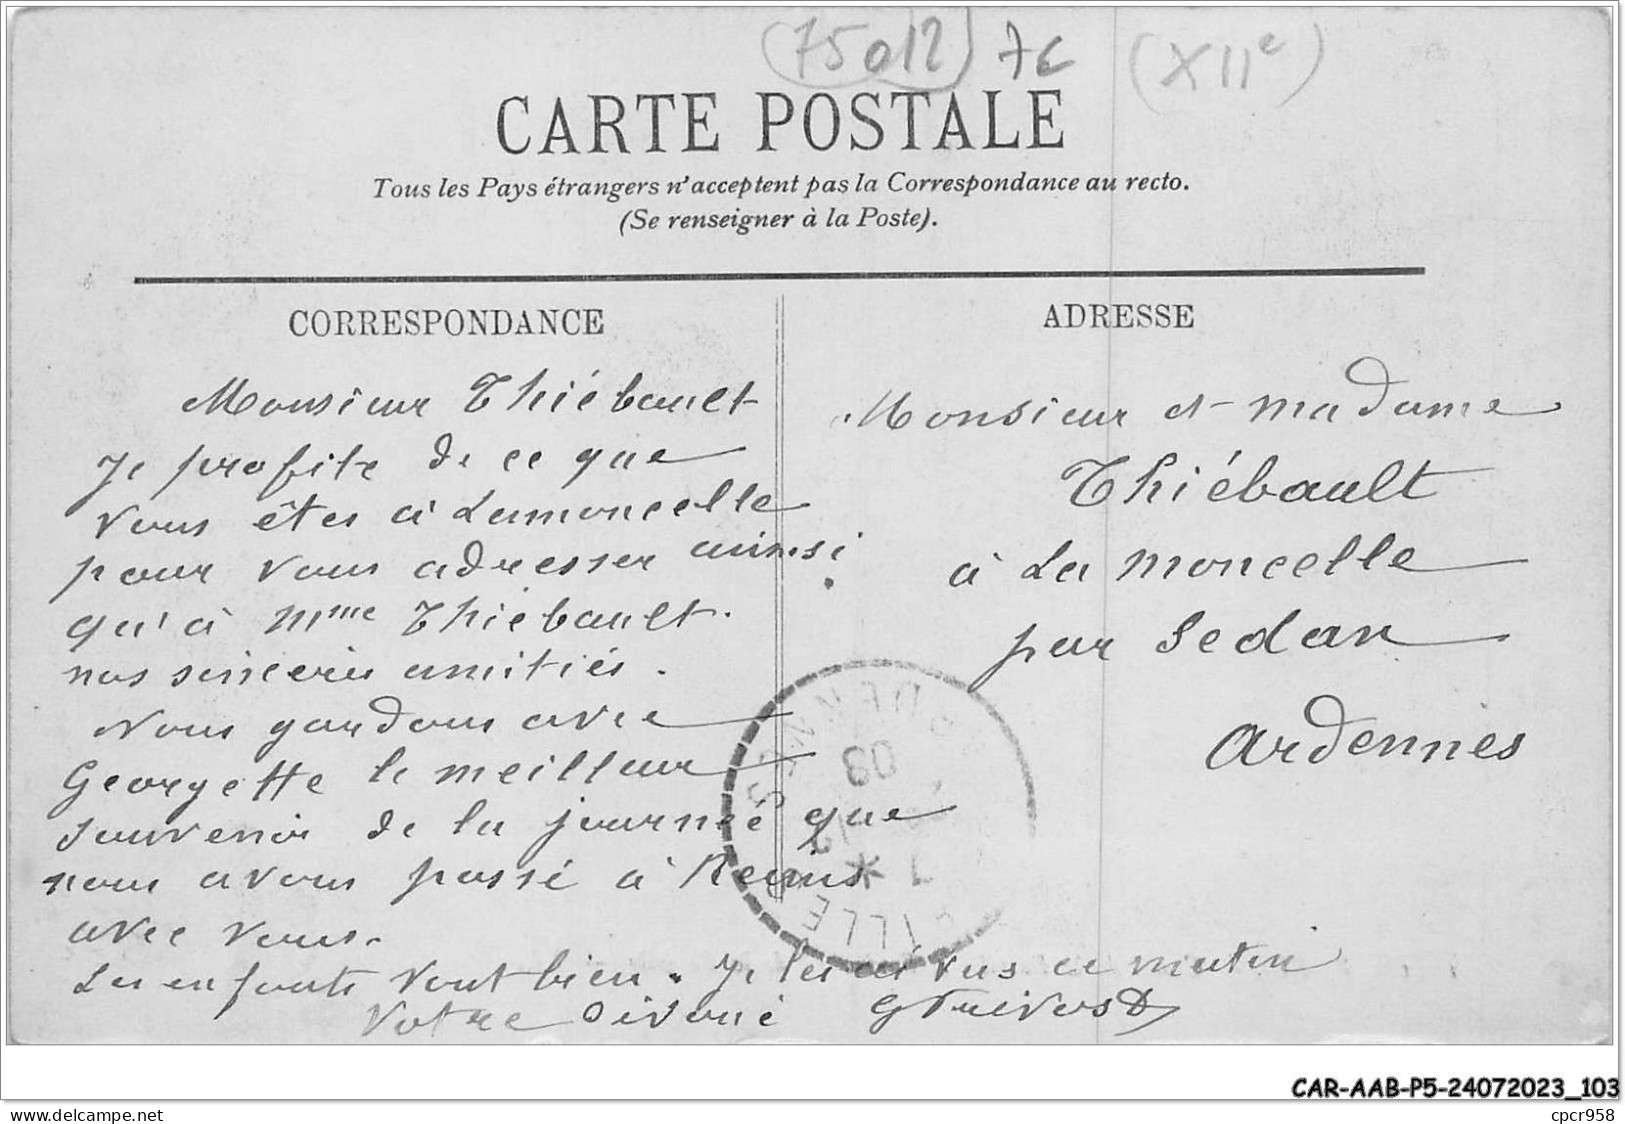 (75012) 76 (XIIe)
CARTE POSTALE
Tous les Pays étrangers n'acceptent pas la Correspondance au recto.
(Se renseigner à la Poste).
CORRESPONDANCE
Monsieur Thiébault
Je profite de ce que
vous êtes à Lamoncelle
pour vous adresser ainsi
qu'à Mme Thiébault.
nos sincères amitiés.
Nous gardons avec
Georgette le meilleur
souvenir de la journée que
nous avons passé à Reims
avec vous.
Les enfants vont bien. Je les ai vus ce matin
Votre dévoué
ADRESSE
Monsieur et madame
Thiébault
à La moncelle
par Sedan
Ardennes
08
CAR-AAB-P5-24072023_103
www.delcampe.net
cpcr958